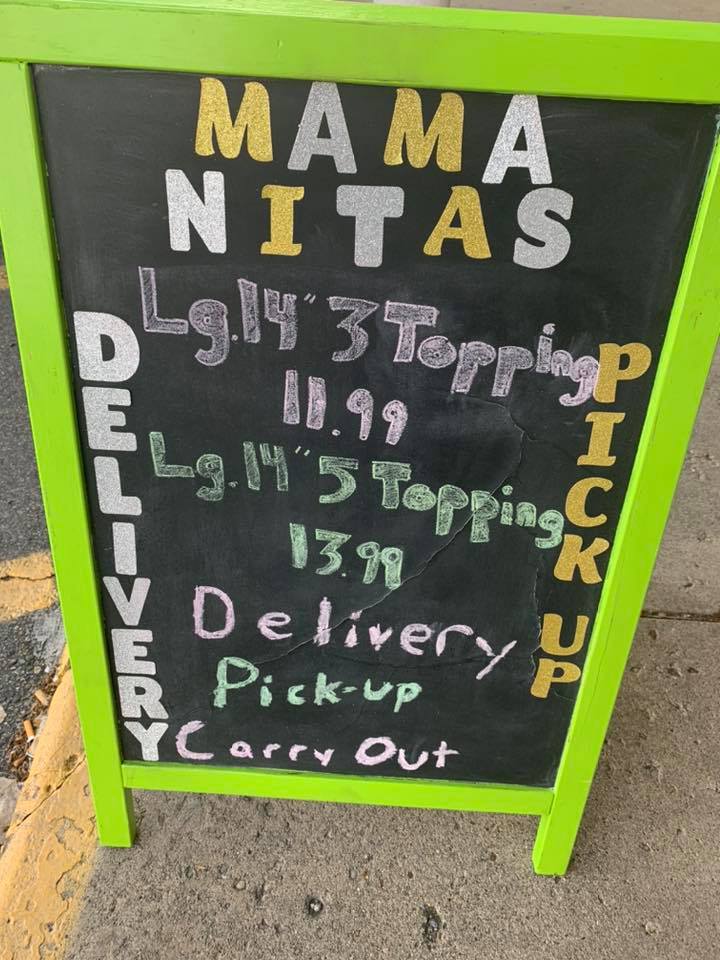 MAMA
NITAS
Lg. 14" 3 Topping
11.99
Lg. 14" 5 Topping
13.99
Delivery
Pick-up
Carry Out
DELIVERY
PICK UP